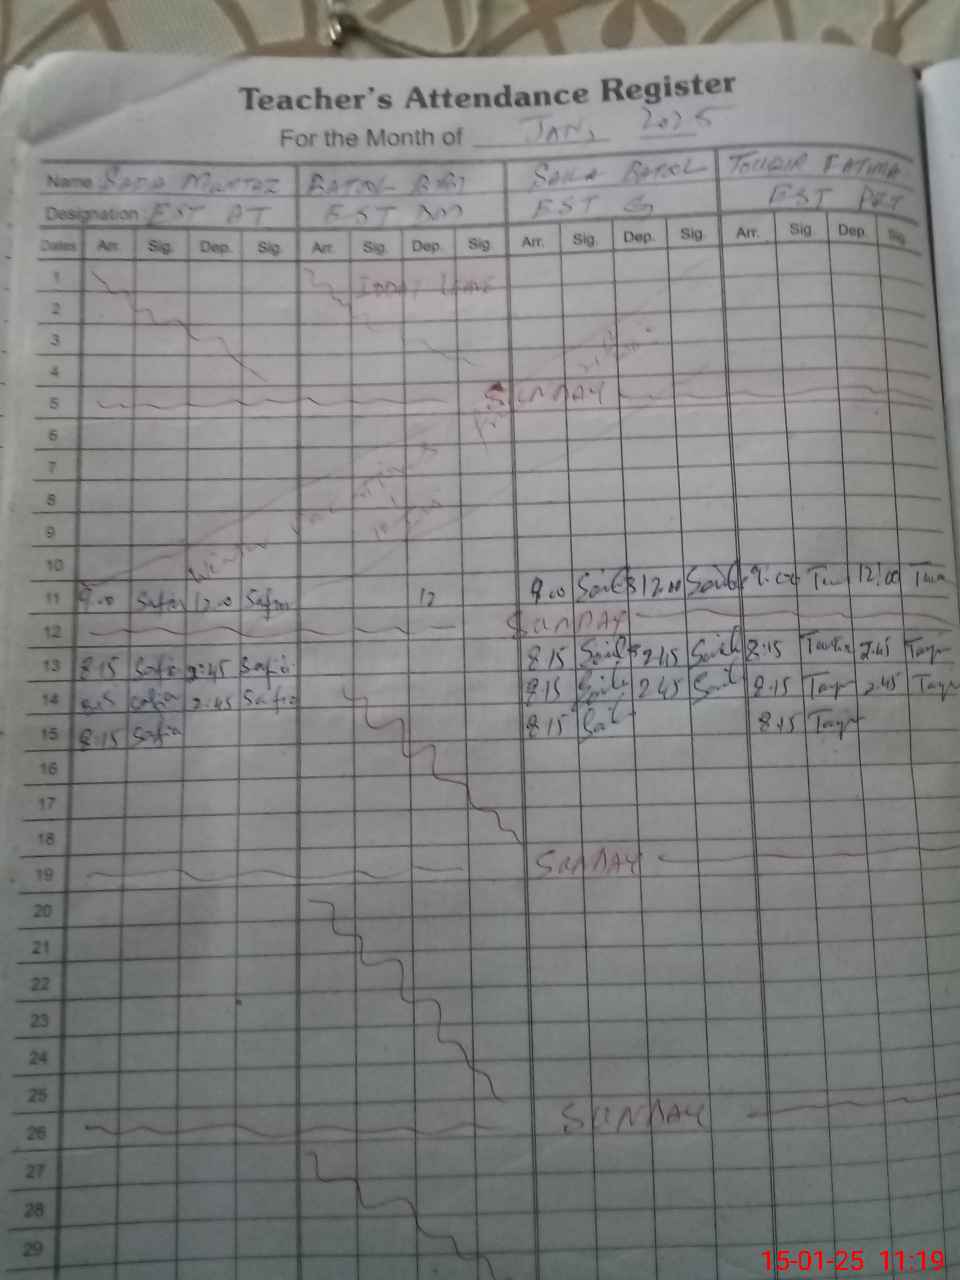 Teacher's Attendance Register
For the Month of JAN, 2025
Name MUMTAZ BATOOL BIBI BATOOL FATIMA
Designation EST AT EST DM EST EST PET
Dates Arr. Sig. Dep. Sig. Arr. Sig. Dep. Sig. Arr. Sig. Dep. Sig. Arr. Sig. Dep. Sig.
1
2
3
4
5 SUNDAY
6
7
8
9 Winter
10
11 9.00 Safia 12.00 Safia 12 9.00 12.00 9:00 12:00
12 SUNDAY
13 8:15 Safia 2:45 Safia 8:15 2:45 8:15 2:45
14 8:15 Safia 2:45 Safia 8:15 2:45 8:15 2:45
15 8:15 Safia 8:15 8:15
16
17
18
19 SUNDAY
20
21
22
23
24
25
26 SUNDAY
27
28
29
15-01-25 11:19